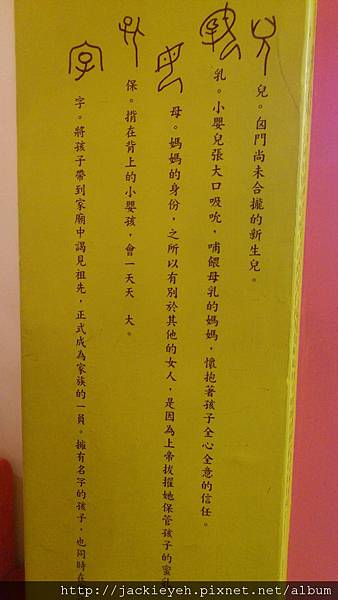 兒。囟門尚未合攏的新生兒。
乳。小嬰兒張大口吸吮，哺餵母乳的媽媽，懷抱著孩子全心全意的信任。
母。媽媽的身份，之所以有別於其他的女人，是因為上帝拔擢她保管孩子的蜜
保。揹在背上的小嬰孩，會一天天 大。
字。將孩子帶到家廟中謁見祖先，正式成為家族的一員。擁有名字的孩子，也同時在
http://jackieyeh.pixnet.net/album